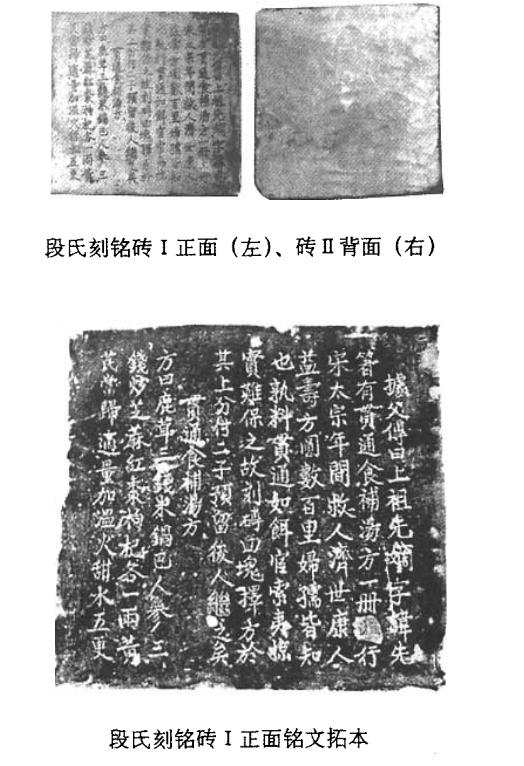 段氏刻铭砖Ⅰ正面（左）、砖Ⅱ背面（右）
據父傳曰上祖先字諱先
箸有貫通食補湯方一册行
宋太宗年間救人濟世康人
益壽方圓數百里婦孺皆知
也孰料貫通如餌官索夷
實難保之故刻磚四塊擇方於
其上分付二子預留後人繼之矣
貫通食補湯方
方曰鹿茸三錢米鍋巴人參三
錢炒芝蔴紅棗枸杞各一兩黄
芪當歸適量加溫火甜水五更
段氏刻铭砖Ⅰ正面铭文拓本